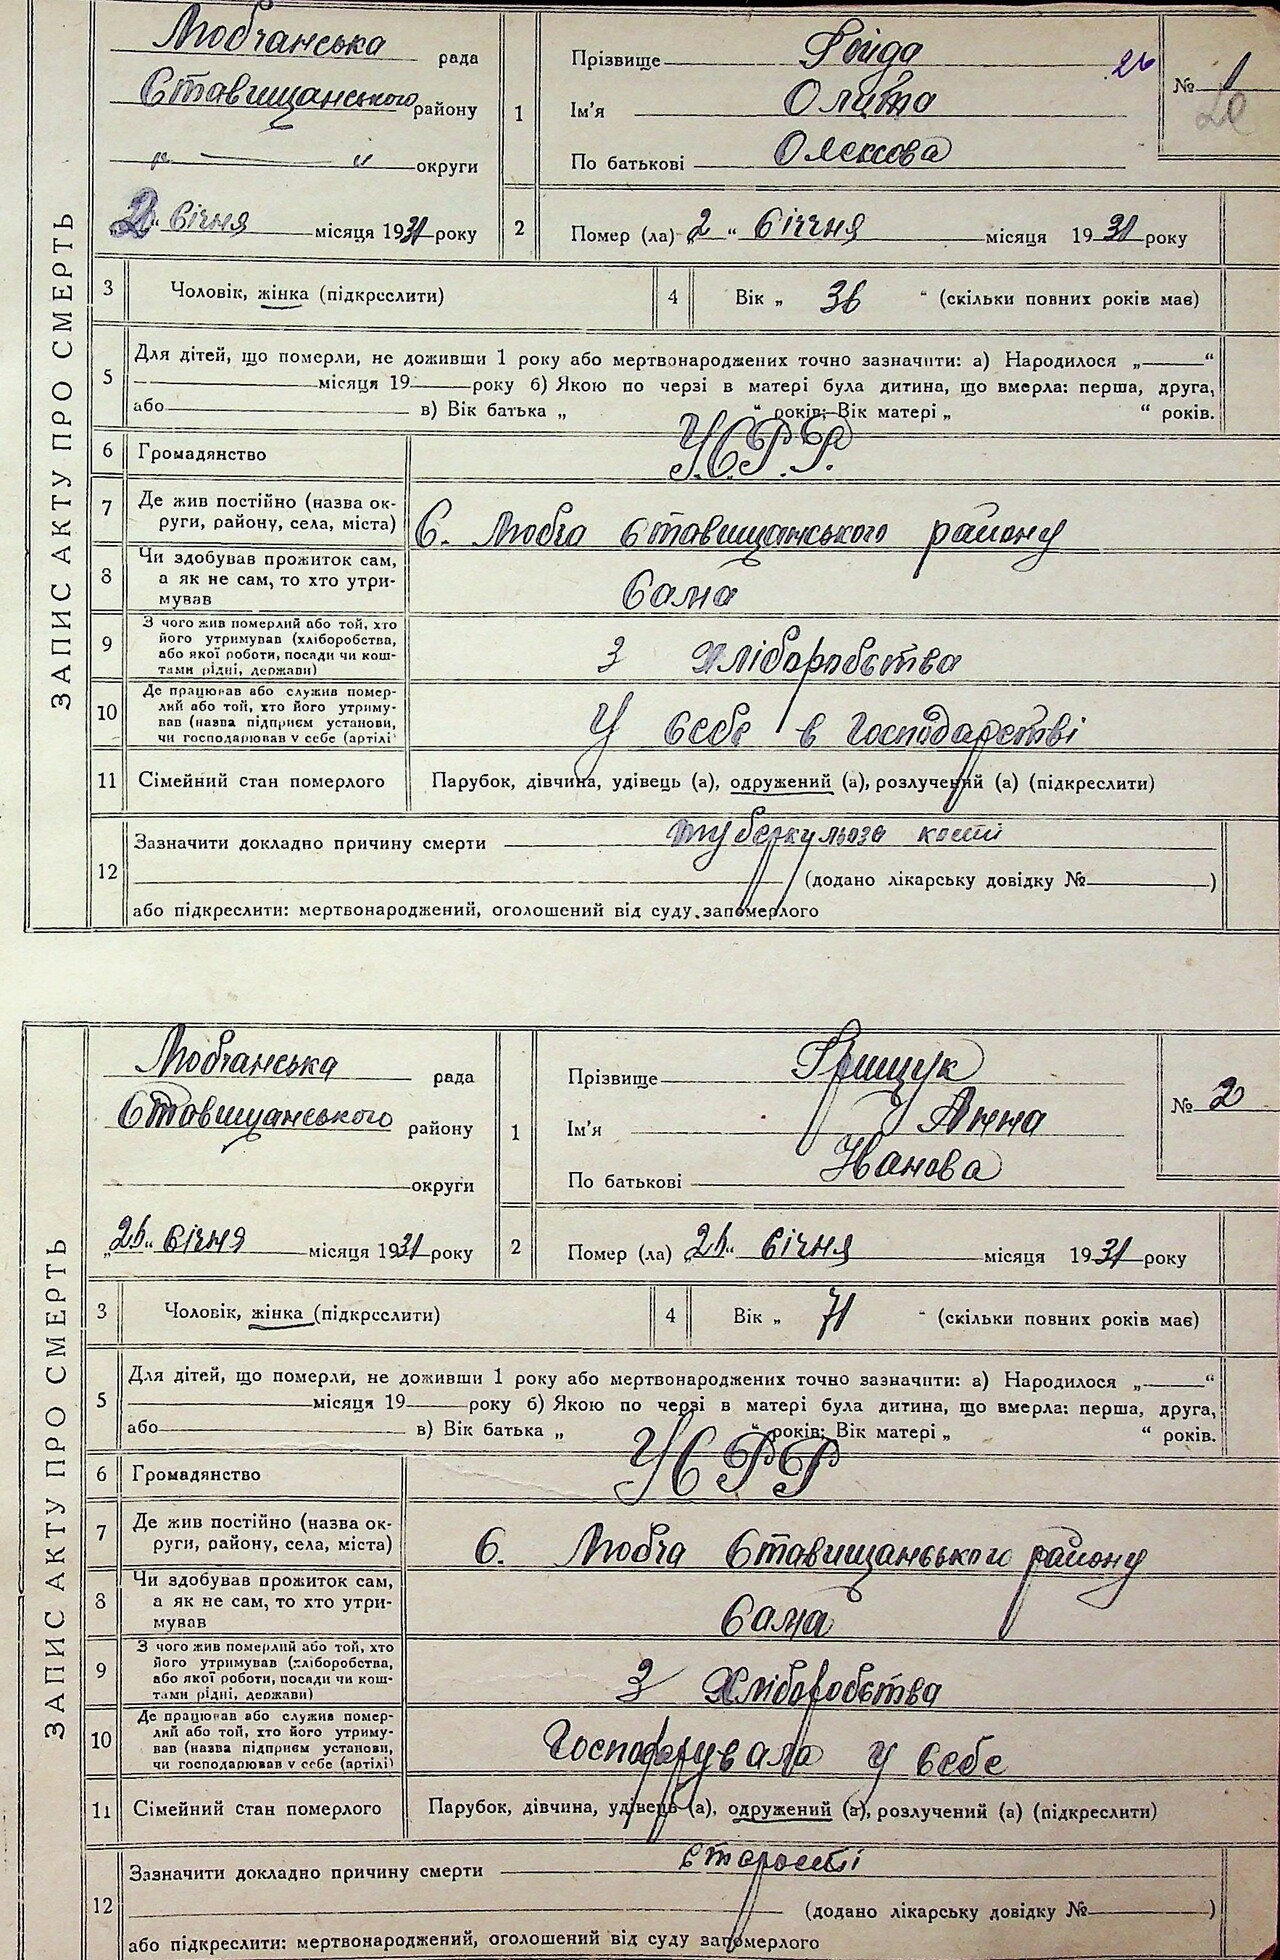 ЗАПИС АКТУ ПРО СМЕРТЬ
Любчанська рада
Ставищанського району
„ — " округи
2 „ січня місяця 1931 року
1
Прізвище Гойда
26
Ім'я
По батькові Олексова
№ 1
2 Помер (ла) „2 " січня місяця 1931 року
3 Чоловік, жінка (підкреслити)
4 Вік „ 36 " (скільки повних років має)
5 Для дітей, що померли, не доживши 1 року або мертвонароджених точно зазначити: а) Народилося „——"
———місяця 19——року б) Якою по черзі в матері була дитина, що вмерла: перша, друга,
або——— в) Вік батька „ " років; Вік матері „ " років.
6 Громадянство У.С.Р.Р.
7 Де жив постійно (назва ок-
руги, району, села, міста) С. Любча Ставищанського району
8 Чи здобував прожиток сам,
а як не сам, то хто утри-
мував Сама
9 З чого жив померлий або той, хто
його утримував (хліборобства,
або якої роботи, посади чи кош-
тами рідні, держави) З хліборобства
10 Де працював або служив помер-
лий або той, хто його утриму-
вав (назва підприєм установи,
чи господарював у себе (артілі) У себе в господарстві
11 Сімейний стан померлого Парубок, дівчина, удівець (а), одружений (а), розлучений (а) (підкреслити)
12 Зазначити докладно причину смерти туберкульоза кости
(додано лікарську довідку №———)
або підкреслити: мертвонароджений, оголошений від суду запомерлого
ЗАПИС АКТУ ПРО СМЕРТЬ
Любчанська рада
Ставищанського району
округи
„26„ січня місяця 1931 року
1
Прізвище Грищук
Ім'я Анна
По батькові Іванова
№ 2
2 Помер (ла) „26„ січня місяця 1931 року
3 Чоловік, жінка (підкреслити)
4 Вік „ 71 " (скільки повних років має)
5 Для дітей, що померли, не доживши 1 року або мертвонароджених точно зазначити: а) Народилося „——"
———місяця 19——року б) Якою по черзі в матері була дитина, що вмерла: перша, друга,
або——— в) Вік батька „ " років; Вік матері „ " років.
6 Громадянство УСРР
7 Де жив постійно (назва ок-
руги, району, села, міста) С. Любча Ставищанського району
8 Чи здобував прожиток сам,
а як не сам, то хто утри-
мував Сама
9 З чого жив померлий або той, хто
його утримував (хліборобства,
або якої роботи, посади чи кош-
тами рідні, держави) З хліборобства
10 Де працював або служив помер-
лий або той, хто його утриму-
вав (назва підприєм установи,
чи господарював у себе (артілі) Господарувала у себе
11 Сімейний стан померлого Парубок, дівчина, удівець (а), одружений (а), розлучений (а) (підкреслити)
12 Зазначити докладно причину смерти старости
(додано лікарську довідку №———)
або підкреслити: мертвонароджений, оголошений від суду запомерлого